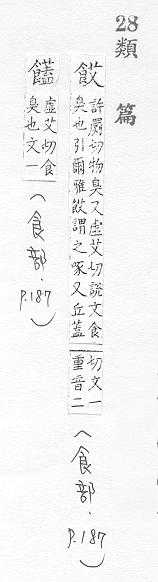 28類 篇
餀
許罽切物臭又虛艾切說文食
臭也引爾雅餀謂之喙又丘蓋
切文一
重音二
(食部. P.187)
饚
虛艾切食
臭也文一
(食部. P.187)